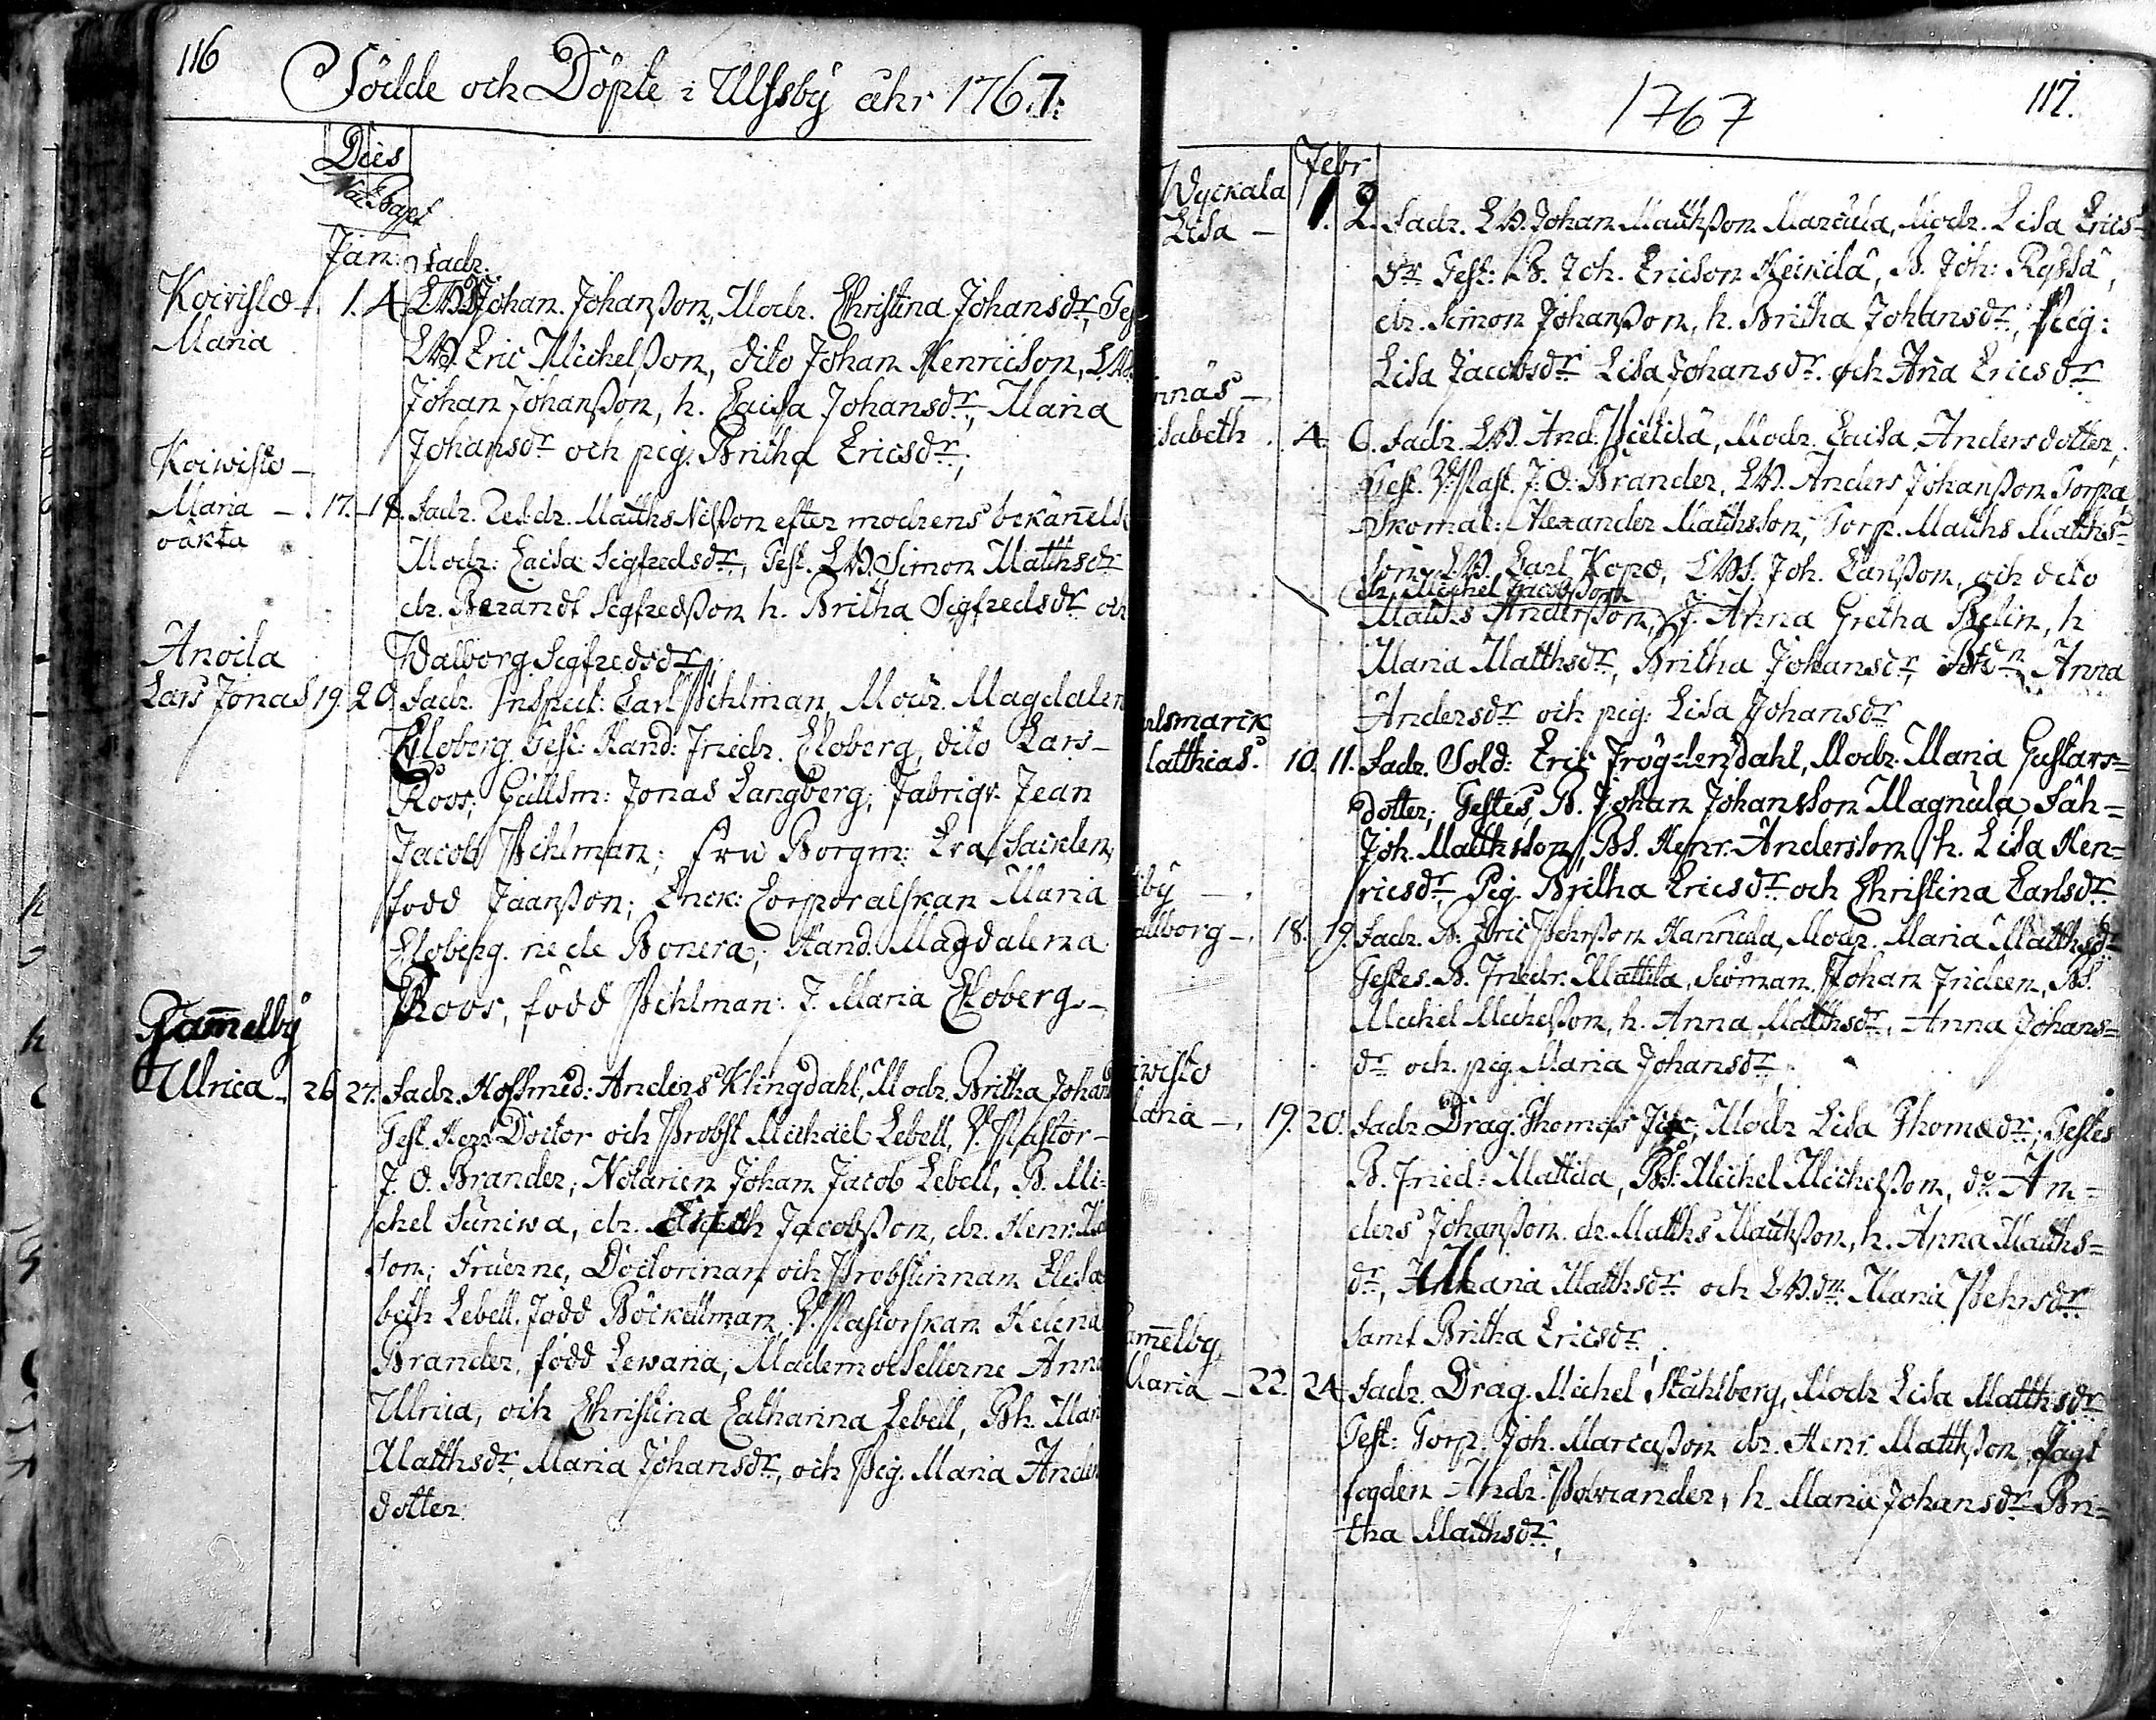 116
Födde och Döpte i Ulfsby åhr 1767:
Dies
Nat. Bapt
Jan: Fadr.
Koivisto 1. 4. LB. Johan Johanßon, Modr. Christina Johansdr, Test
Maria
LB. Eric Michelßon, dito Johan Henricson, LB.
Johan Johanßon, h. Caisa Johansdr, Maria
Johansdr och pig. Britha Ericsdr,
Koiwisto –
Maria – 17. 18. Fadr. Matths Nilßon efter modrens bekänelse
oäkta
Modr: Caisa Sigfredsdr, Test. LB. Simon Matthsdr
dr. Berandt Sigfredßon h. Britha Sigfredsdr och
Walborg Sigfredsdr
Anoila
Lars Jonas 19. 20. Fadr. Inspect: Carl Pihlman, Modr. Magdalen
Ekoberg Test: Hand: Friedr. Ekoberg, dito Lars –
Roos; Gullsm: Jonas Langberg; Fabriqr. Jean
Jacob Pihlman; fru Borgm: Eva Sacklen,
född Jaanßon; Enck: Corporalskan Maria
Ekoberg. né de Bonera; Hand. Magdalena
Roos, född Pihlman: J. Maria Ekoberg –
Gam̄elby
Ulrica – 26 27. Fadr. Hofsmed: Anders Klingdahl, Modr. Britha Johans
Test. Herr Doctor och Probst Michaël Lebell, V. Pastor –
J. O. Brander; Notarien Johan Jacob Lebell, B. Mi-
chel Suniwa, dr. Jacobßon, dr. Henr.
son; Fruerne, Doctorinan och Probstinnan Elisa
beth Lebell. född Böckellman, V. Pastorskan Helena
Brander, född Lewana; Mademoisellerne Anna
Ulrica, och Christina Catharina Lebell, Bh. Maria
Matthsdr, Maria Johansdr, och Pig. Maria Anders
dotter.
1767
117.
Febr
Wyckala
Lisa – 1. 2. Fadr. LB. Johan Matthßon Marcula, Modr. Lisa Erics-
dr Test: B. Joh. Ericson Heickilä, B. Joh: Ryssä,
dr. Simon Johanßon, h. Britha Johansdr, Pig:
Lisa Jacobsdr Lisa Johansdr. och Aña Ericsdr
innäs –
isabeth. 4. 6. Fadr. LB. And. Pietilä, Modr. Caisa Andersdotter,
Test. V. Past. J. O. Brander, LB. Anders Johanßon Torpa,
Skomak: Alexander Matthsson, Torp. Matths Matths-
son, LB. Carl Kopo, LBS. Joh. Carlßon, och dito
dr. Michel Jacobßon
Matths Anderßon, J. Anna Gretha Belin, h
Maria Matthsdr, Britha Johansdr, Anna
Andersdr och pig: Lisa Johansdr
alsmarck
Matthias. 10. 11. Fadr. Sold: Eric Frögdendahl, Modr. Maria Gustavs-
dotter; Testes, B. Johan Johansson Magnula, Fäh-
Joh. Matthsson, BS. Henr. Andersson h. Lisa Hen-
ricsdr Pig. Britha Ericsdr och Christina Carlsdr
by –
allborg –. 18. 19. Fadr. B. Eric Pehrßon Hannula, Modr. Maria Matthsdr
Testes. B. Friedr. Mattila, Sioman. Johan Frideen, BS.
Michel Michelßon, h. Anna Matthsdr, Anna Johans-
dr och pig. Maria Johansdr
iwisto
Maria –. 19. 20. Fadr. Drag. Thomas, Modr Lisa Thomædr; Testes
B. Fried: Mattila, BS. Michel Michelßon, do An-
ders Johanßon. dr. Matths Matthßon, h. Anna Matths-
dr, Maria Matthsdr och LB.dr. Maria Pehrsdr
samt Britha Ericsdr,
am̄elby
Maria – 22. 24 Fadr. Drag. Michel Ståhlberg, Modr Lisa Matthsdr
Test: Torp. Joh. Marcußon dr. Henr. Matthßon, Jagt
fogden Andr. Polviander, h. Maria Johansdr Bri-
tha Matthsdr,